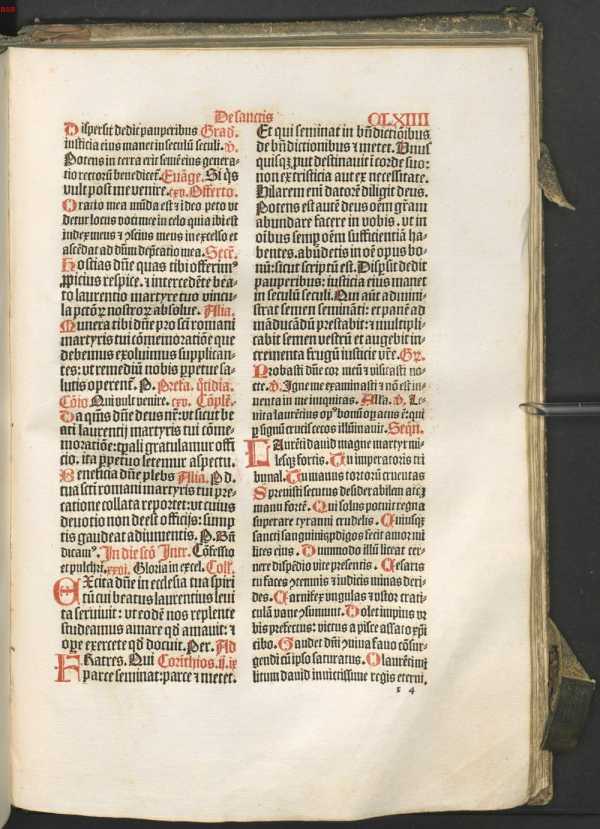 De sanctis
CLXIIII
Dispersit dedit pauperibus Grad̄.
iusticia eius manet in seculū seculi. v̄.
Potens in terra erit semē eius genera-
tio rectorū benedicet̄. Euāge. Si q̄s
vult post me venire. cxv. Offerto.
Oratio mea mūda est ⁊ ideo peto vt
detur locus voci mee in celo quia ibi est
iudex meus ⁊ ꝯscius meus in excelso et
ascēdat ad dūm dep̄catio mea. Secr̄.
Hostias dn̄e quas tibi offerimꝰ
ꝓpicius respice. ⁊ intercedēte bea-
to laurentio martyre tuo vincu-
la pctōꝝ nostroꝝ absolue. Alia.
Munera tibi dn̄e pro scī romani
martyris tui cōmemoratiōe que
debemus exoluimus supplican-
tes: vt remediū nobis ꝑpetue sa-
lutis operent̄. P. Prefa. q̄tidia.
Cōio Qui vult venire. cxv. Cōplē.
Da qm̄s dn̄e deus nr̄: vt sicut be-
ati laurentij martyris tui cōme-
moratiōe: tp̄ali gratulamur offi
cio. ita ꝑpetuo letemur aspectu.
Beneficia dn̄e plebs Alia. P d.
tua scti romani martyris tui pre-
catione collata reportet: vt cuius
deuotio non deest officijs: sump
tis gaudeat adiumentis. P. Bn̄
dicamꝰ. In die scō Intr. Cōfessio
et pulchri. xxvi. Gloria in excel. Coll̄.
Excita dn̄e in ecclesia tua spiri
tū cui beatus laurentius leui
ta seruiuit: vt eodē nos replente
studeamus amare qd̄ amauit: ⁊
oꝑe exercere qd̄ docuit. Per. Ad
Fratres. Qui Corithios. ij. ix
parce seminat: parce ⁊ metet.
Et qui seminat in bn̄dictiōibus
de bn̄dictionibus ⁊ metet. Unus
quisqꝫ put destinauit ī corde suo:
non ex tristicia aut ex necessitate.
Hilarem eni datorē diligit deus.
Potens est autē deus oēm gr̄am
abundare facere in vobis. vt in
oībus semꝑ oēm sufficientiā ha-
bentes. abūdetis in oē opus bo-
nū: sicut scriptū est. Disꝑsit dedit
pauperibus: iusticia eius manet
in seculū seculi. Qui aūt admini-
strat semen semināti: et panē ad
māducādū prestabit: ⁊ multipli-
cabit semen vestrū et augebit in-
crementa frugū iusticie vr̄e. Gr̄.
Probasti dn̄e cor meū ⁊ visitasti no-
cte. v̄. Igne me examinasti ⁊ nō est in-
uenta in me iniquitas. Alla. v̄. Le-
uita laurētius opꝰ bonū oꝑatus ē: qui
ꝑ signū crucis cecos illūinauit. Seqn̄.
Laurēti dauid magne martyr mi-
lesqꝫ fortis. Tu imperatoris tri
bunal. Tu manus tortorū cruentas
Spreuisti secutus desiderabilem atqꝫ
manu fortē. Qui solus potuit regna
superare tyranni crudelis. Cuiusqꝫ
sancti sanguinis ꝓdigos fecit amor mi
lites eius. Dummodo illū liceat cer-
nere dispēdio vite presentis. Cesaris
tu fasces ⁊temnis ⁊ iudicis minas deri-
des. Carnifex vngulas ⁊ vstor crati-
culā vane ꝯsumunt. Dolet impius vr
bis prefectus: victus a pisce assato xp̄i
cibo. Gaudet dn̄i ꝯuiua fauo cōsur-
gendi cū ipso saturatus. O laurēti mi
litum dauid inuictissime regis eterni.
x 4